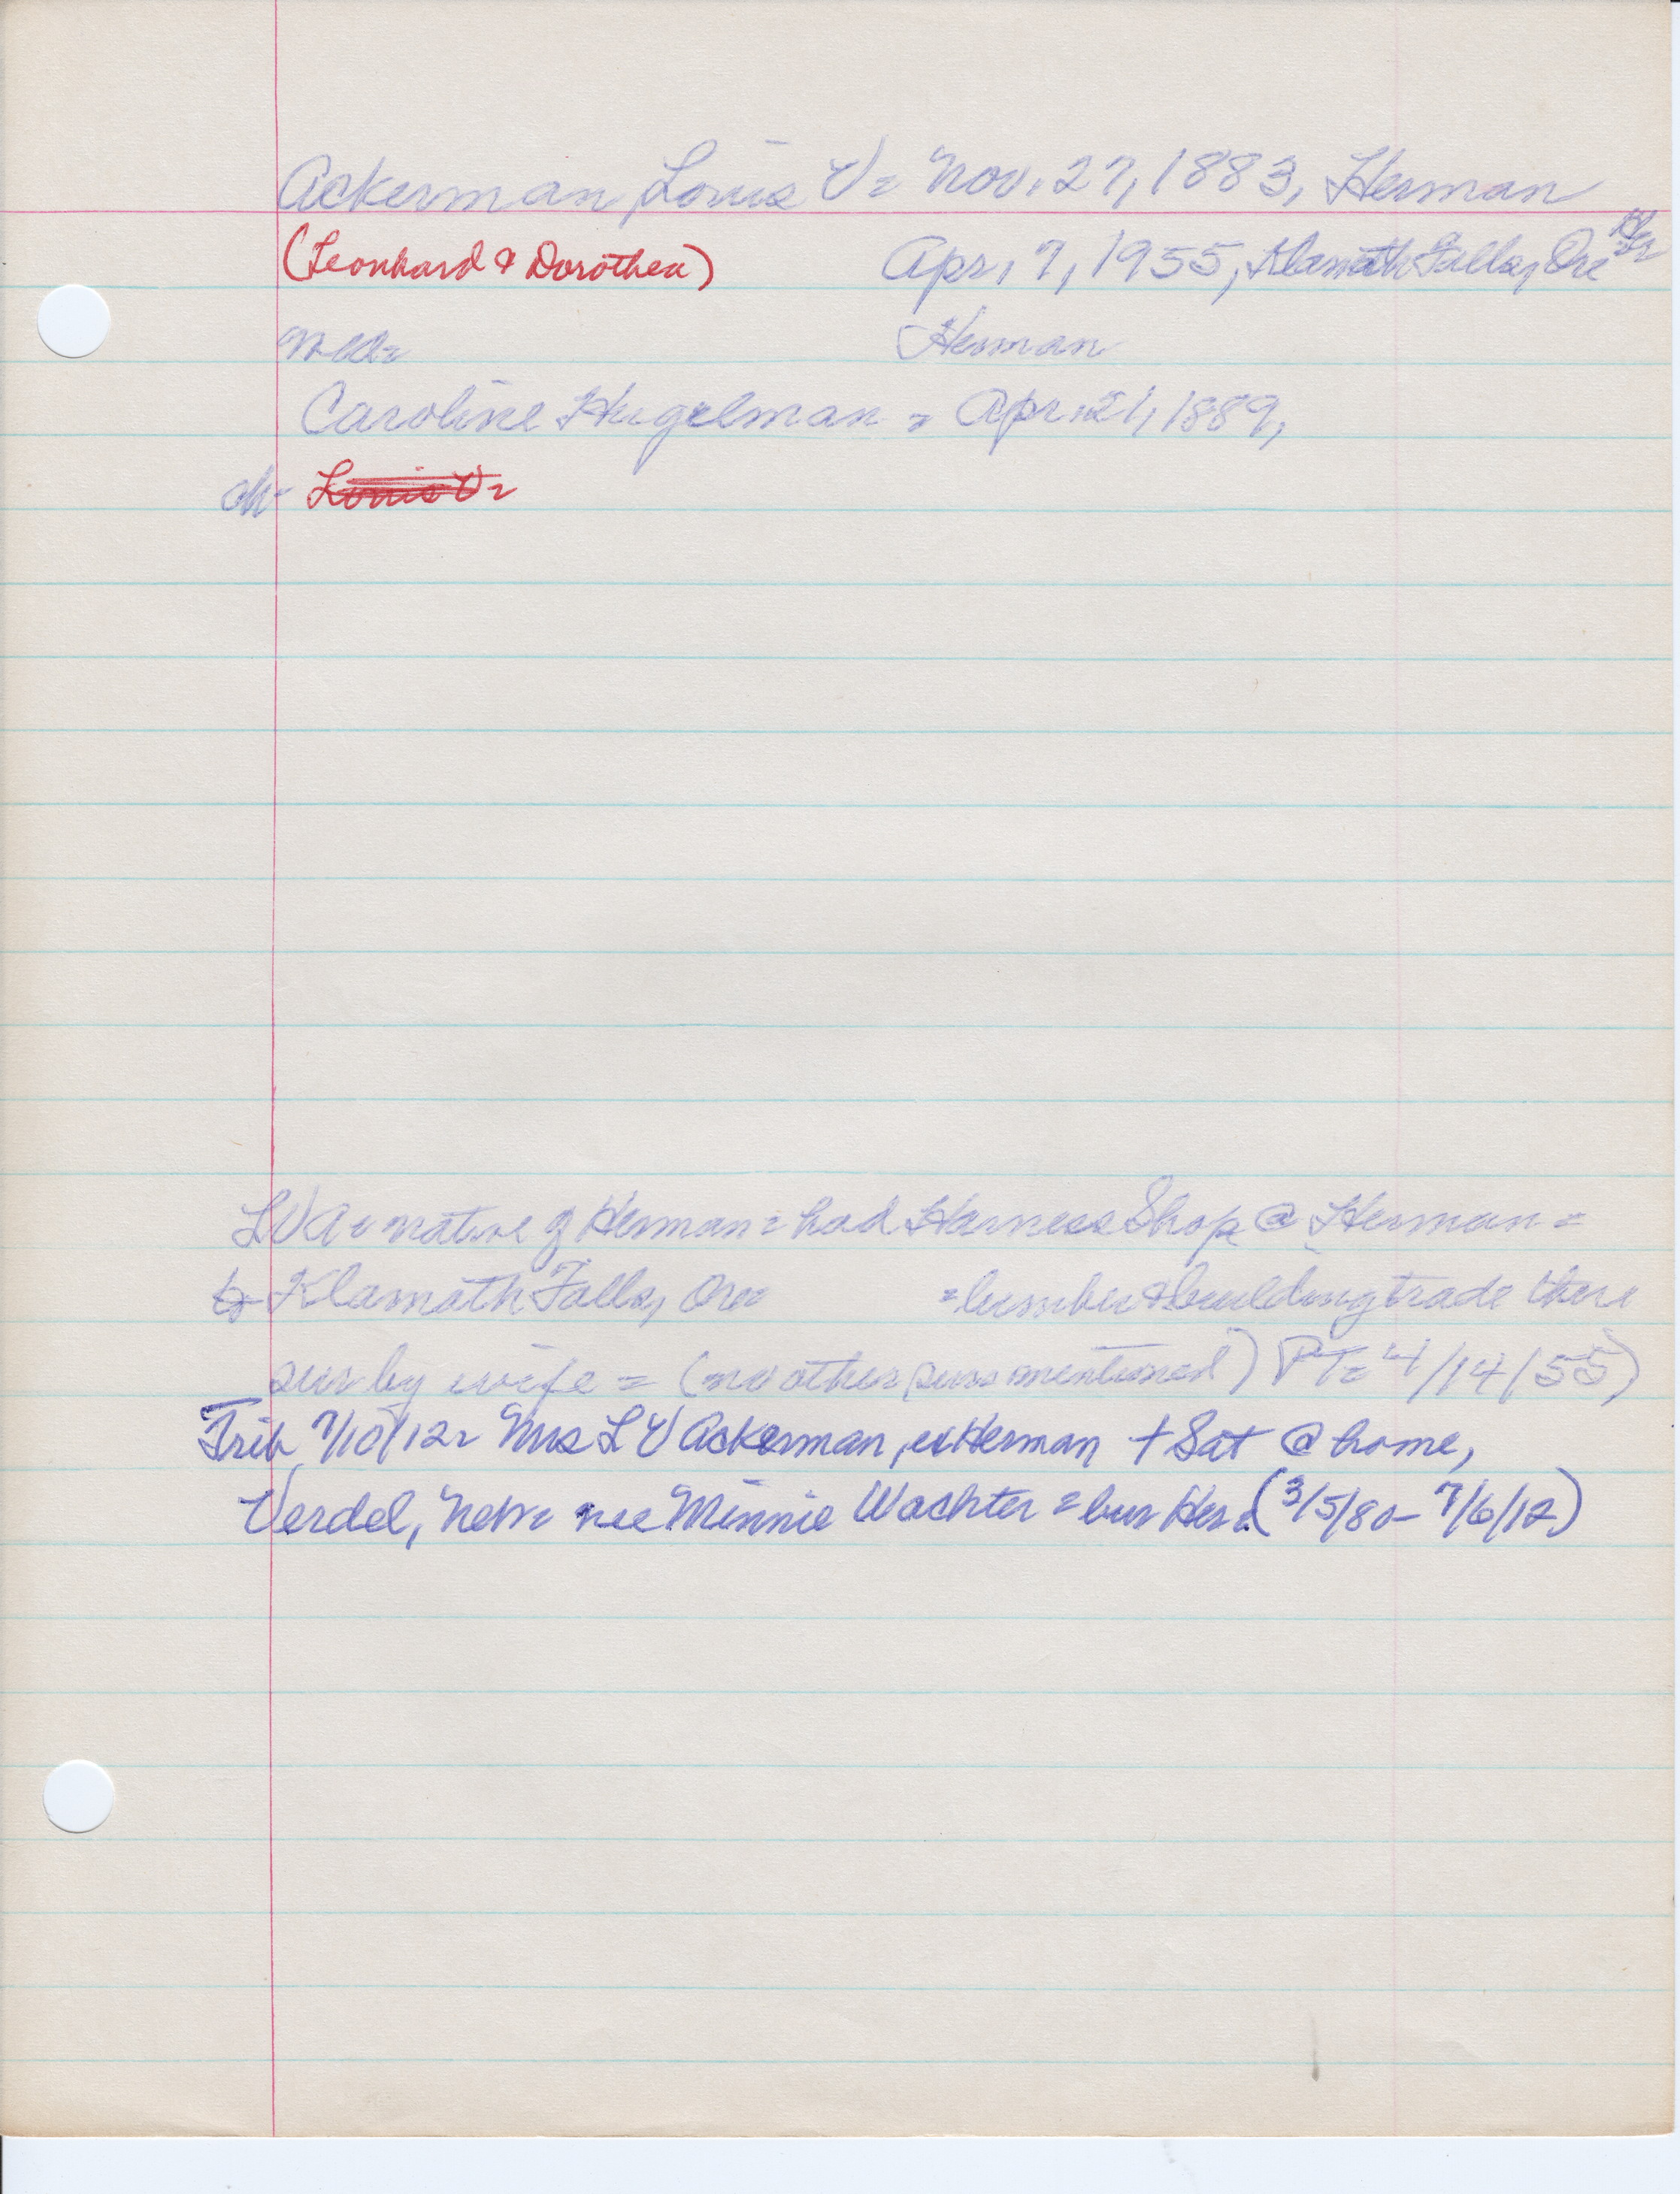 Ackerman, Louis V = Nov. 27, 1883, Herman
(Leonhard & Dorothea) Apr. 7, 1955, Klamath Falls, Ore
Herman
Caroline Hugelman = Apr. 21, 1889,
ch- Louis V =
LVA = native of Herman = had Harness Shop @ Herman =
to Klamath Falls, Ore = lumber & building trade there
sur by wife = (no other surs mentioned) PT = 4/14/55)
Trib 7/10/12 = Mrs L V Ackerman, ex Herman + Sat @ home,
Verdel, Nebr = nee Minnie Wachter = bur Her. (3/5/80 - 7/6/12)